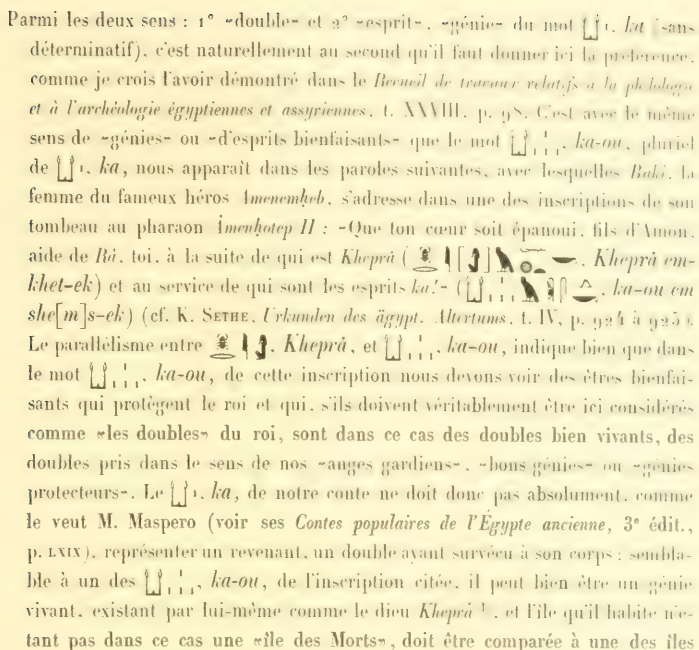 Parmi les deux sens : 1° «double» et 2° «esprit», «génie» du mot 𓂓𓏤, ka (sans
déterminatif), c'est naturellement au second qu'il faut donner ici la préférence,
comme je crois l'avoir démontré dans le Recueil de travaux relatifs à la philologie
et à l'archéologie égyptiennes et assyriennes, t. XXVIII, p. 98. C'est avec le même
sens de «génies» ou «d'esprits bienfaisants» que le mot 𓂓𓏤𓏥, ka-ou, pluriel
de 𓂓𓏤, ka, nous apparaît dans les paroles suivantes, avec lesquelles Baki, la
femme du fameux héros Amenemheb, s'adresse dans une des inscriptions de son
tombeau au pharaon Imenhotep II : «Que ton cœur soit épanoui, fils d'Amon,
aide de Râ, toi, à la suite de qui est Kheprà (, Kheprà em-
khet-ek) et au service de qui sont les esprits ka!» (, ka-ou em
she[m]s-ek) (cf. K. SETHE, Urkunden des ägypt. Altertums, t. IV, p. 924 à 925).
Le parallélisme entre , Kheprà, et 𓂓𓏤𓏥, ka-ou, indique bien que dans
le mot 𓂓𓏤𓏥, ka-ou, de cette inscription nous devons voir des êtres bienfai-
sants qui protègent le roi et qui, s'ils doivent véritablement être ici considérés
comme «les doubles» du roi, sont dans ce cas des doubles bien vivants, des
doubles pris dans le sens de nos «anges gardiens», «bons génies» ou «génies
protecteurs». Le 𓂓𓏤, ka, de notre conte ne doit donc pas absolument, comme
le veut M. Maspero (voir ses Contes populaires de l'Égypte ancienne, 3e édit.,
p. LXIX), représenter un revenant, un double ayant survécu à son corps : sembla-
ble à un des 𓂓𓏤𓏥, ka-ou, de l'inscription citée, il peut bien être un génie
vivant, existant par lui-même comme le dieu Kheprà 1, et l'île qu'il habite n'é-
tant pas dans ce cas une «île des Morts», doit être comparée à une des îles